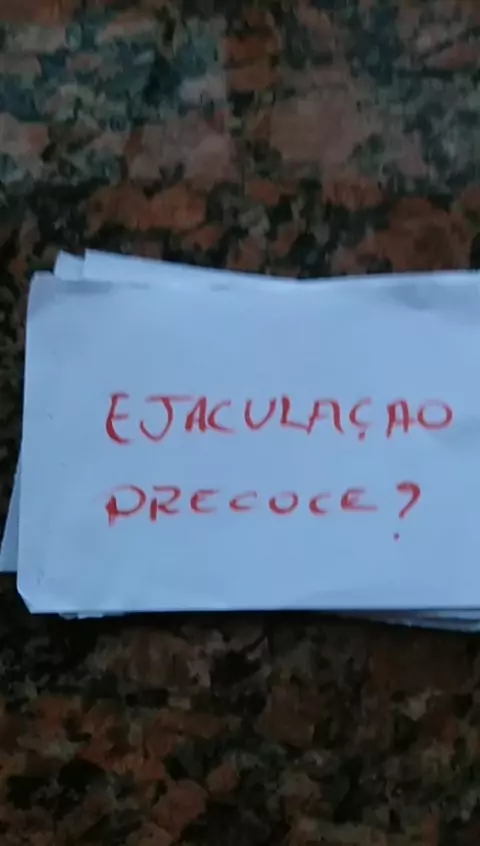 EJACULAÇAO
PRECOCE?